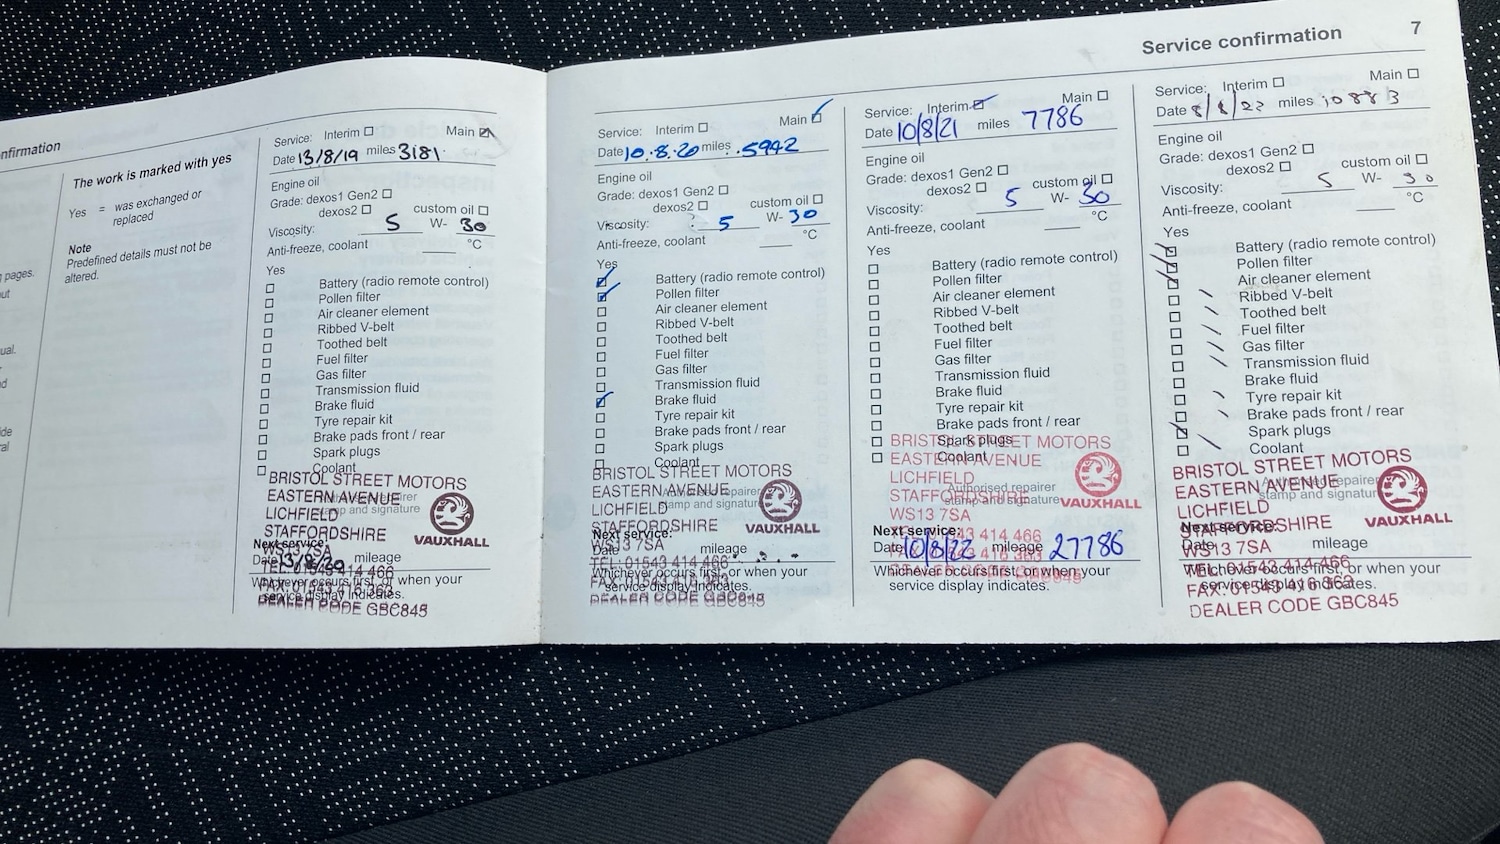 Service confirmation 7
nfirmation
pages.
ual.
The work is marked with yes
Yes = was exchanged or
replaced
Note
Predefined details must not be
altered.
Service: Interim ☐ Main ☑
Date 13/8/19 miles 3181
Engine oil
Grade: dexos1 Gen2 ☐
dexos2 ☐ custom oil ☐
Viscosity: 5 W- 30
Anti-freeze, coolant ____ °C
Yes
☐ Battery (radio remote control)
☐ Pollen filter
☐ Air cleaner element
☐ Ribbed V-belt
☐ Toothed belt
☐ Fuel filter
☐ Gas filter
☐ Transmission fluid
☐ Brake fluid
☐ Tyre repair kit
☐ Brake pads front / rear
☐ Spark plugs
☐ Coolant
BRISTOL STREET MOTORS
EASTERN AVENUE
LICHFIELD
STAFFORDSHIRE
WS13 7SA
TEL: 01543 414 466
FAX: 01543 416 363
DEALER CODE GBC845
VAUXHALL
Authorised repairer
stamp and signature
Next service:
Date 13/8/20 mileage
Whichever occurs first, or when your
service display indicates.
Service: Interim ☐ Main ☑
Date 10.8.20 miles 5942
Engine oil
Grade: dexos1 Gen2 ☐
dexos2 ☐ custom oil ☐
Viscosity: 5 W- 30
Anti-freeze, coolant ____ °C
Yes
☑ Battery (radio remote control)
☑ Pollen filter
☐ Air cleaner element
☐ Ribbed V-belt
☐ Toothed belt
☐ Fuel filter
☐ Gas filter
☐ Transmission fluid
☑ Brake fluid
☐ Tyre repair kit
☐ Brake pads front / rear
☐ Spark plugs
☐ Coolant
BRISTOL STREET MOTORS
EASTERN AVENUE
LICHFIELD
STAFFORDSHIRE
WS13 7SA
TEL: 01543 414 466
FAX: 01543 416 363
DEALER CODE GBC845
VAUXHALL
Authorised repairer
stamp and signature
Next service:
Date mileage
Whichever occurs first, or when your
service display indicates.
Service: Interim ☑ Main ☐
Date 10/8/21 miles 7786
Engine oil
Grade: dexos1 Gen2 ☐
dexos2 ☐ custom oil ☐
Viscosity: 5 W- 30
Anti-freeze, coolant ____ °C
Yes
☐ Battery (radio remote control)
☐ Pollen filter
☐ Air cleaner element
☐ Ribbed V-belt
☐ Toothed belt
☐ Fuel filter
☐ Gas filter
☐ Transmission fluid
☐ Brake fluid
☐ Tyre repair kit
☐ Brake pads front / rear
☐ Spark plugs
☐ Coolant
BRISTOL STREET MOTORS
EASTERN AVENUE
LICHFIELD
STAFFORDSHIRE
WS13 7SA
VAUXHALL
Authorised repairer
stamp and signature
Next service:
Date 10/8/22 mileage 27786
Whichever occurs first, or when your
service display indicates.
Service: Interim ☐ Main ☐
Date 8/8/22 miles 10883
Engine oil
Grade: dexos1 Gen2 ☐
dexos2 ☐ custom oil ☐
Viscosity: 5 W- 30
Anti-freeze, coolant ____ °C
Yes
☑ Battery (radio remote control)
☑ Pollen filter
☑ Air cleaner element
☐ Ribbed V-belt
☐ Toothed belt
☐ Fuel filter
☐ Gas filter
☐ Transmission fluid
☐ Brake fluid
☐ Tyre repair kit
☐ Brake pads front / rear
☑ Spark plugs
☐ Coolant
BRISTOL STREET MOTORS
EASTERN AVENUE
LICHFIELD
STAFFORDSHIRE
WS13 7SA
TEL: 01543 414 466
FAX: 01543 416 363
DEALER CODE GBC845
VAUXHALL
Authorised repairer
stamp and signature
Next service:
Date mileage
Whichever occurs first, or when your
service display indicates.